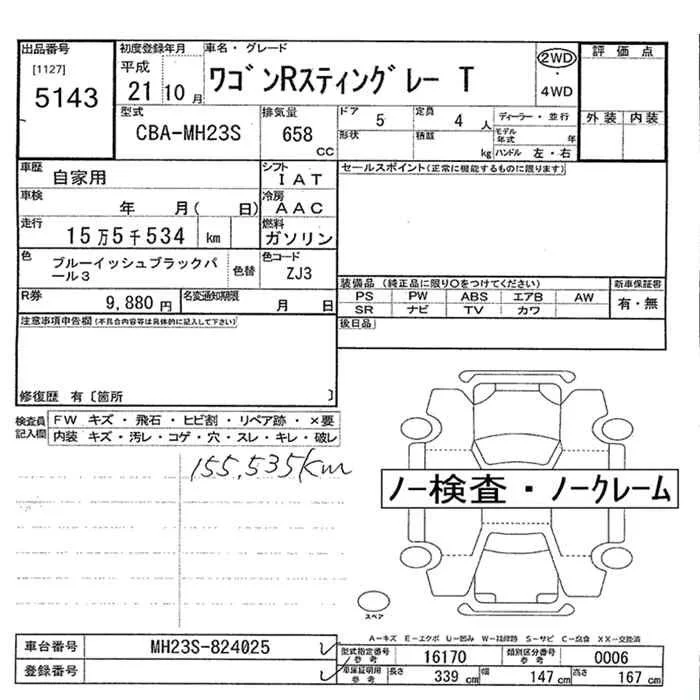 出品番号
[1127]
5143
初度登録年月
平成
21 10 月
車名・グレード
ワゴンRスティングレー T
2WD
・
4WD
評価点
外装 内装
型式
CBA-MH23S
排気量
658
cc
ドア 5
定員 4 人
形状
積載 kg
ディーラー・並行
モデル年式 年
ハンドル 左・右
車歴
自家用
シフト
IAT
車検
年 月( 日)
冷房
AAC
走行
15万5千534 km
燃料
ガソリン
色
ブルーイッシュブラックパール3
色替
色コード
ZJ3
R券
9,880円
名変通知期限
月 日
セールスポイント(正常に機能するものに限ります)
装備品(純正品に限り○をつけてください)
PS PW ABS エアB AW
SR ナビ TV カワ
新車保証書
有・無
後日品
注意事項申告欄(不具合内容等は具体的に記入して下さい)
修復歴 有〔箇所 〕
検査員記入欄
FW キズ・飛石・ヒビ割・リペア跡・×要
内装 キズ・汚レ・コゲ・穴・スレ・キレ・破レ
155,535km
ノー検査・ノークレーム
スペア
A-キズ E-エクボ U-凹み W-補修跡 S-サビ C-腐食 XX-交換済
車台番号
MH23S-824025
登録番号
型式指定番号
参考
16170
類別区分番号
参考
0006
車庫証明用
参考
長さ 339 cm
幅 147 cm
高さ 167 cm